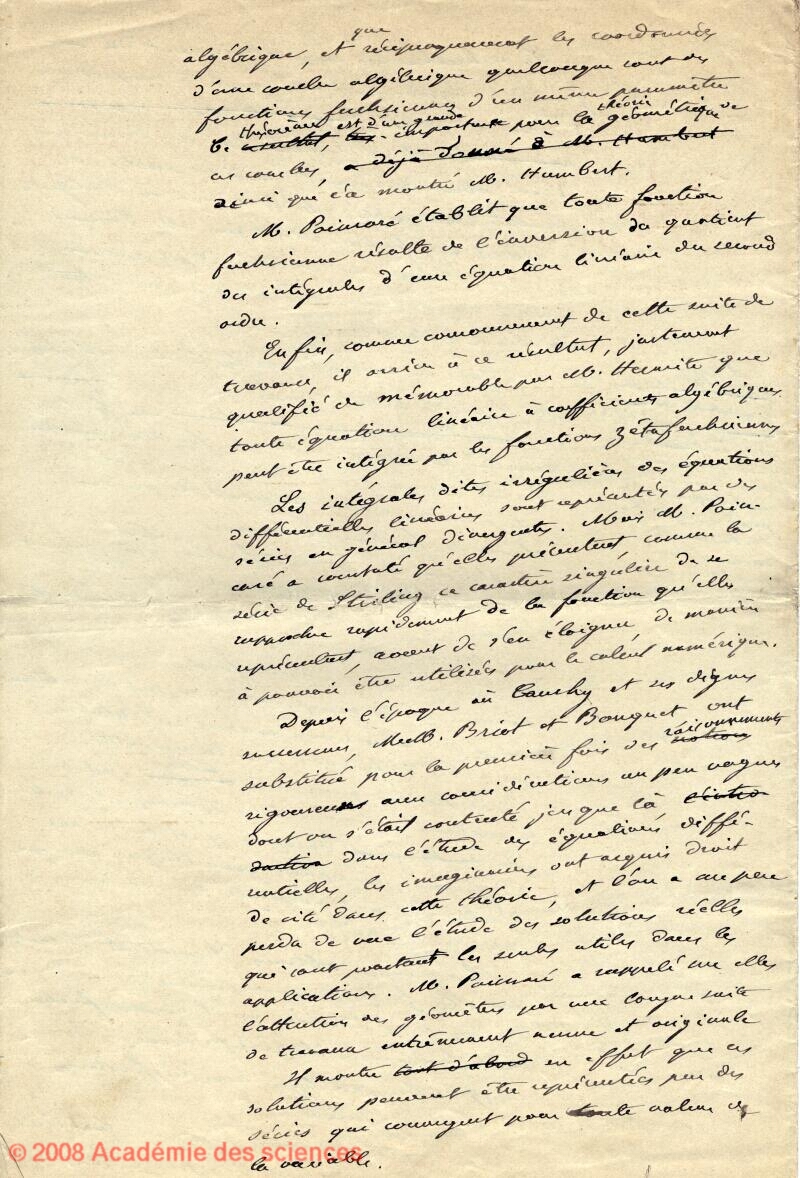 que
algébrique, et réciproquement les coordonnées
d'une courbe algébrique quelconque sont des
fonctions fuchsiennes d'un même paramètre
théorème est d'une grande théorie
Ce résultat, très importante pour la géométrique de
ces courbes, a déjà donné à M. Humbert
ainsi que l'a montré M. Humbert.
M. Poincaré établit que toute fonction
fuchsienne résulte de l'inversion du quotient
des intégrales d'une équation linéaire du second
ordre.
Enfin, comme couronnement de cette suite de
travaux, il arrive à ce résultat, justement
qualifié de mémorable par M. Hermite que
toute équation linéaire à coefficients algébriques
peut être intégrée par les fonctions zétafuchsiennes
Les intégrales dites irrégulières des équations
différentielles linéaires sont représentées par des
séries en général divergentes. Mais M. Poin-
caré a constaté qu'elles présentent comme la
série de Stirling ce caractère singulier de se
rapprocher rapidement de la fonction qu'elles
représentent, avant de s'en éloigner de manière
à pouvoir être utilisées pour le calcul numérique.
Depuis l'époque où Cauchy et ses dignes
successeurs, MM. Briot et Bouquet ont
substitué pour la première fois des raisonnements
notions
rigoureux aux considérations un peu vagues
dont on s'était contenté jusque là l'intro
duction dans l'étude des équations diffé-
rentielles, les imaginaires ont acquis droit
de cité dans cette théorie, et l'on a un peu
perdu de vue l'étude des solutions réelles
qui sont pourtant les seules utiles dans les
applications. M. Poincaré a rappelé sur elles
l'attention des géomètres par une longue suite
de travaux entièrement neuve et originale
Il montre tout d'abord en effet que ces
solutions peuvent être représentées par des
séries qui convergent pour toute valeur de
la variable.
© 2008 Académie des sciences